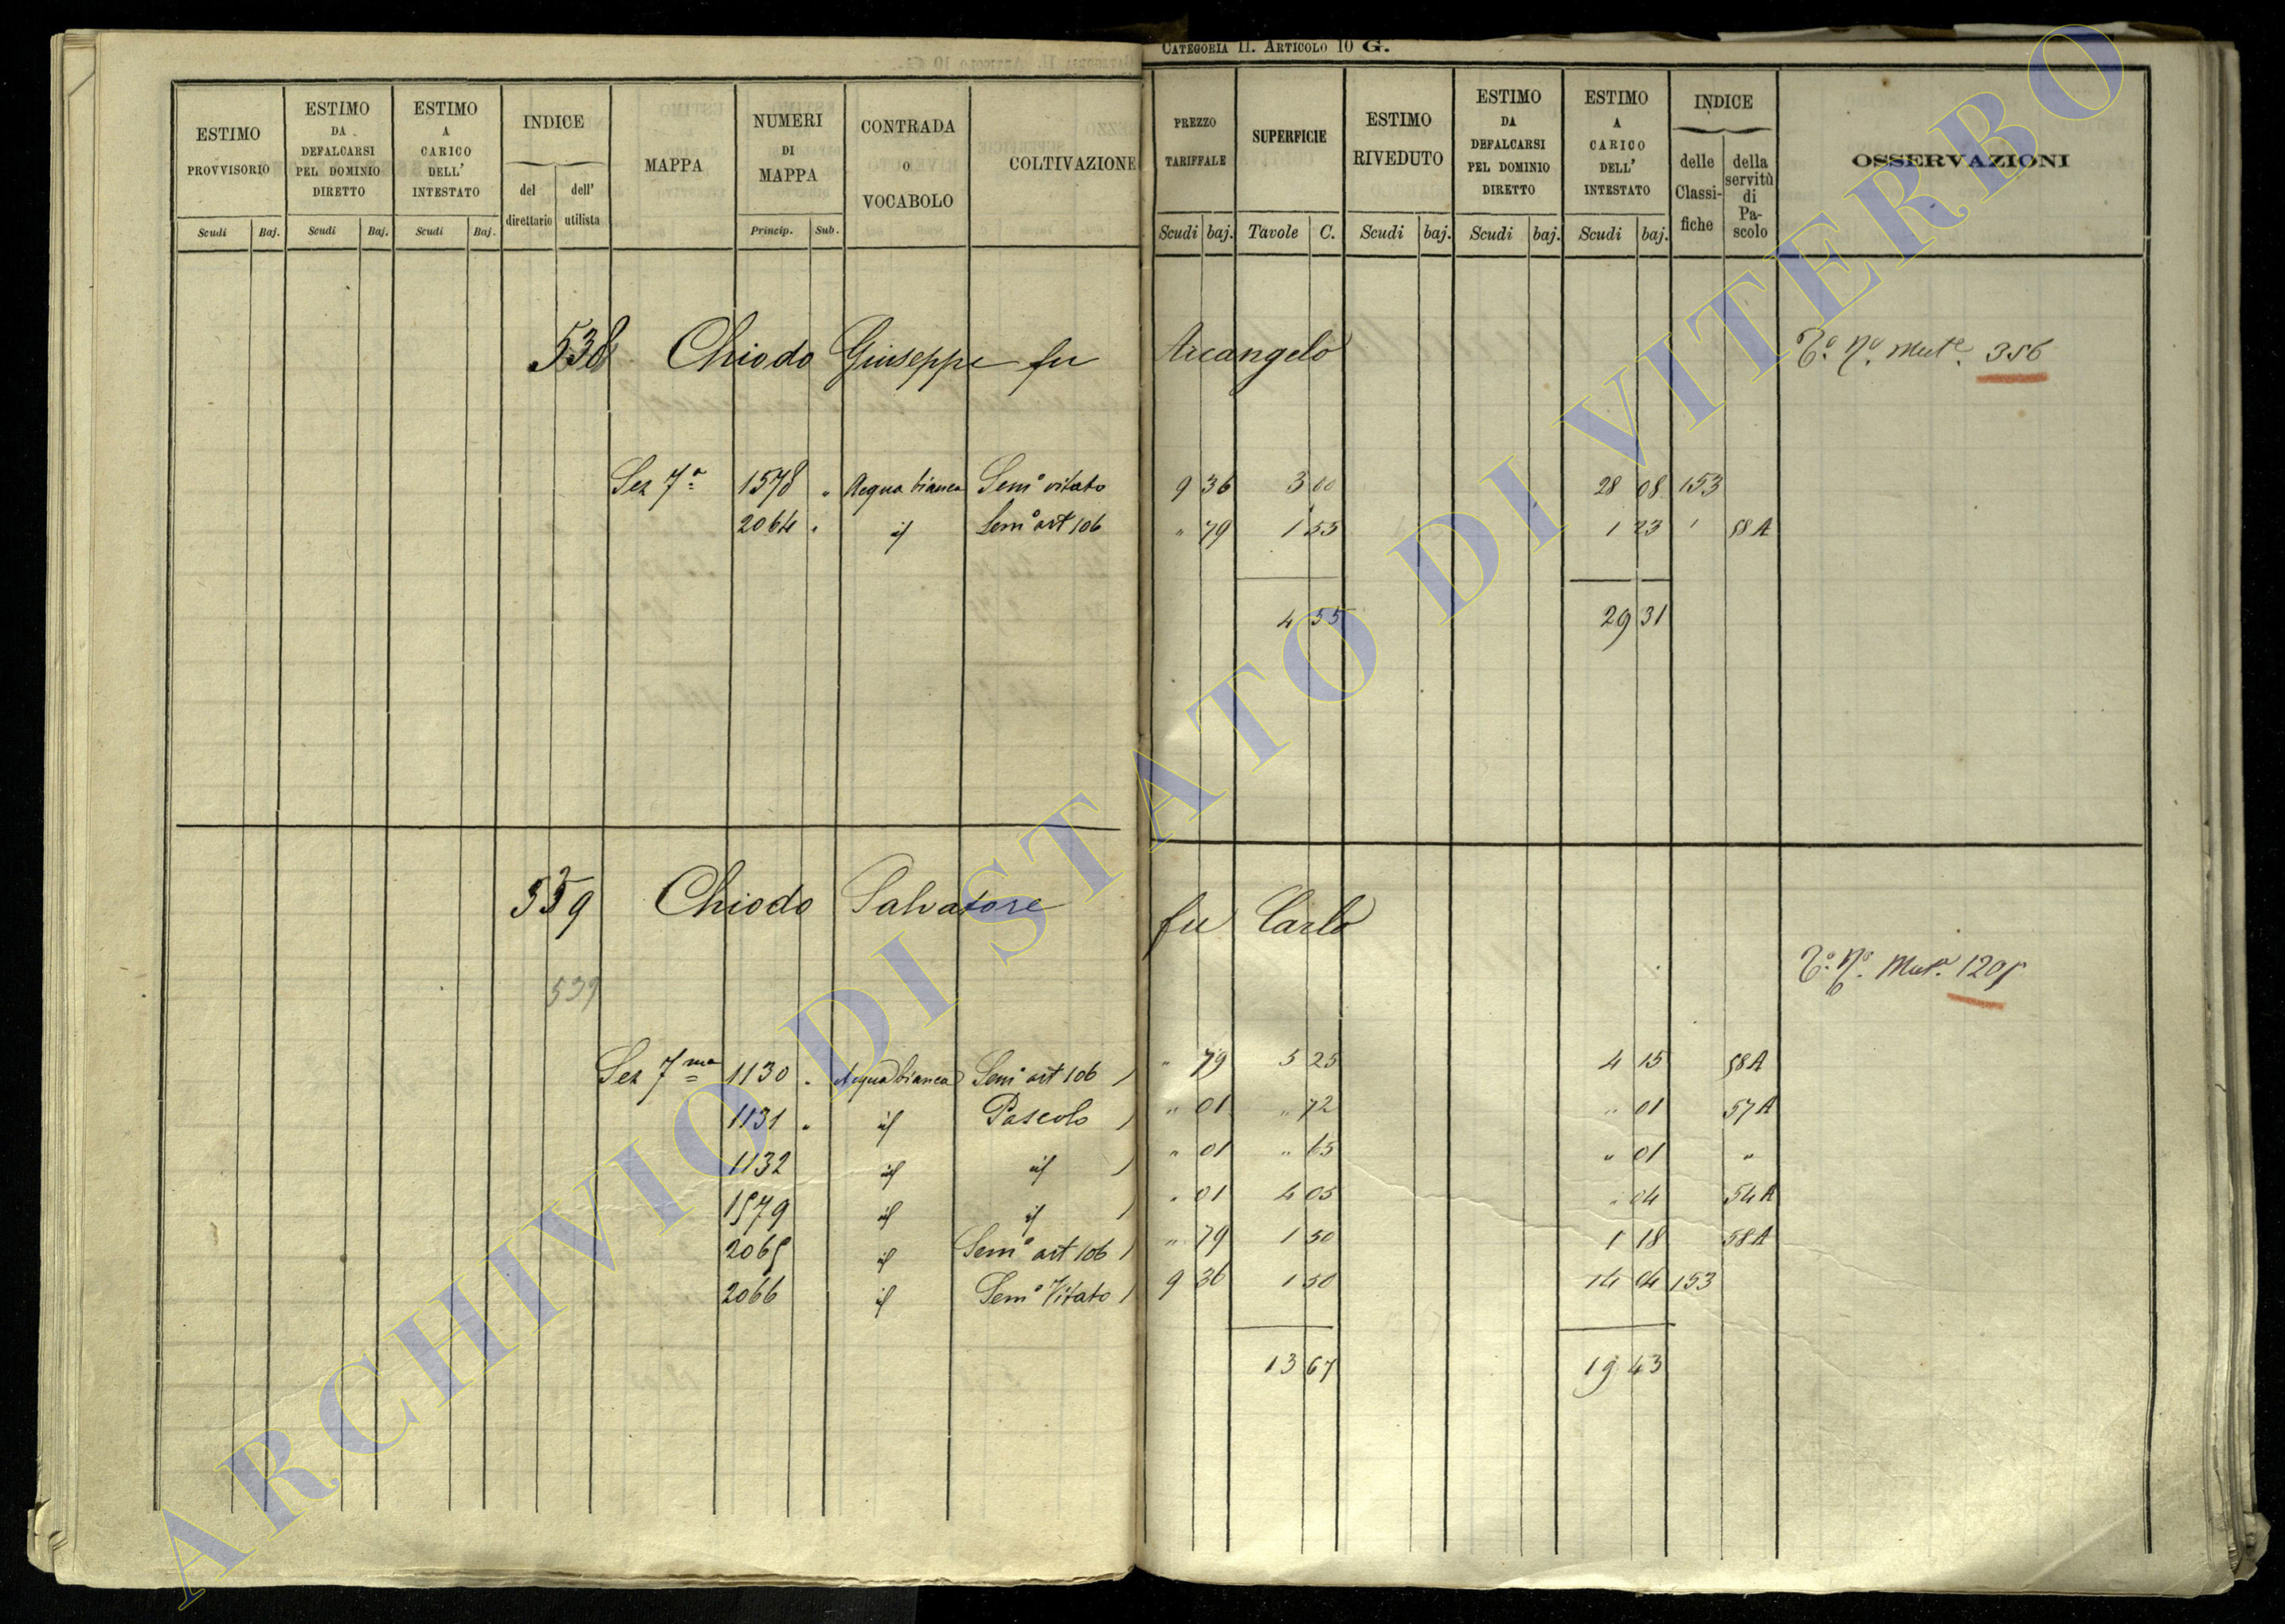 CATEGORIA II. ARTICOLO 10 G.
ESTIMO PROVVISORIO
Scudi Baj.
ESTIMO DA DEFALCARSI PEL DOMINIO DIRETTO
Scudi Baj.
ESTIMO A CARICO DELL' INTESTATO
Scudi Baj.
INDICE
del direttario
dell' utilista
MAPPA
NUMERI DI MAPPA
Princip. Sub.
CONTRADA O VOCABOLO
COLTIVAZIONE
PREZZO TARIFFALE
Scudi baj.
SUPERFICIE
Tavole C.
ESTIMO RIVEDUTO
Scudi baj.
ESTIMO DA DEFALCARSI PEL DOMINIO DIRETTO
Scudi baj.
ESTIMO A CARICO DELL' INTESTATO
Scudi baj.
INDICE
delle Classi-fiche
della servitù di Pa-scolo
OSSERVAZIONI
538 Chiodo Giuseppe fu Arcangelo Nº Mutе. 356
Sez 7ª 1578 " Acqua bianca Semº vitato 9 36 3 00 28 08 153
2064 " id Semº art 106 " 79 1 55 1 23 58A
4 55 29 31
539 Chiodo Salvatore fu Carlo
539 Nº Mutª. 1205
Sez 7ma 1130 " Acqua bianca Semº art 106 " 79 5 25 4 15 58A
1131 " id Pascolo " 01 " 72 " 01 57A
1132 id id " 01 " 65 " 01 "
1579 id id " 01 4 05 " 04 54A
2065 id Semº art 106 " 79 1 50 1 18 58A
2066 id Semº Vitato 9 36 1 50 14 04 153
13 67 19 43
ARCHIVIO DI STATO DI VITERBO